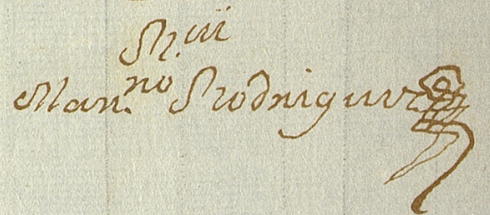 Man.no Rodriguez